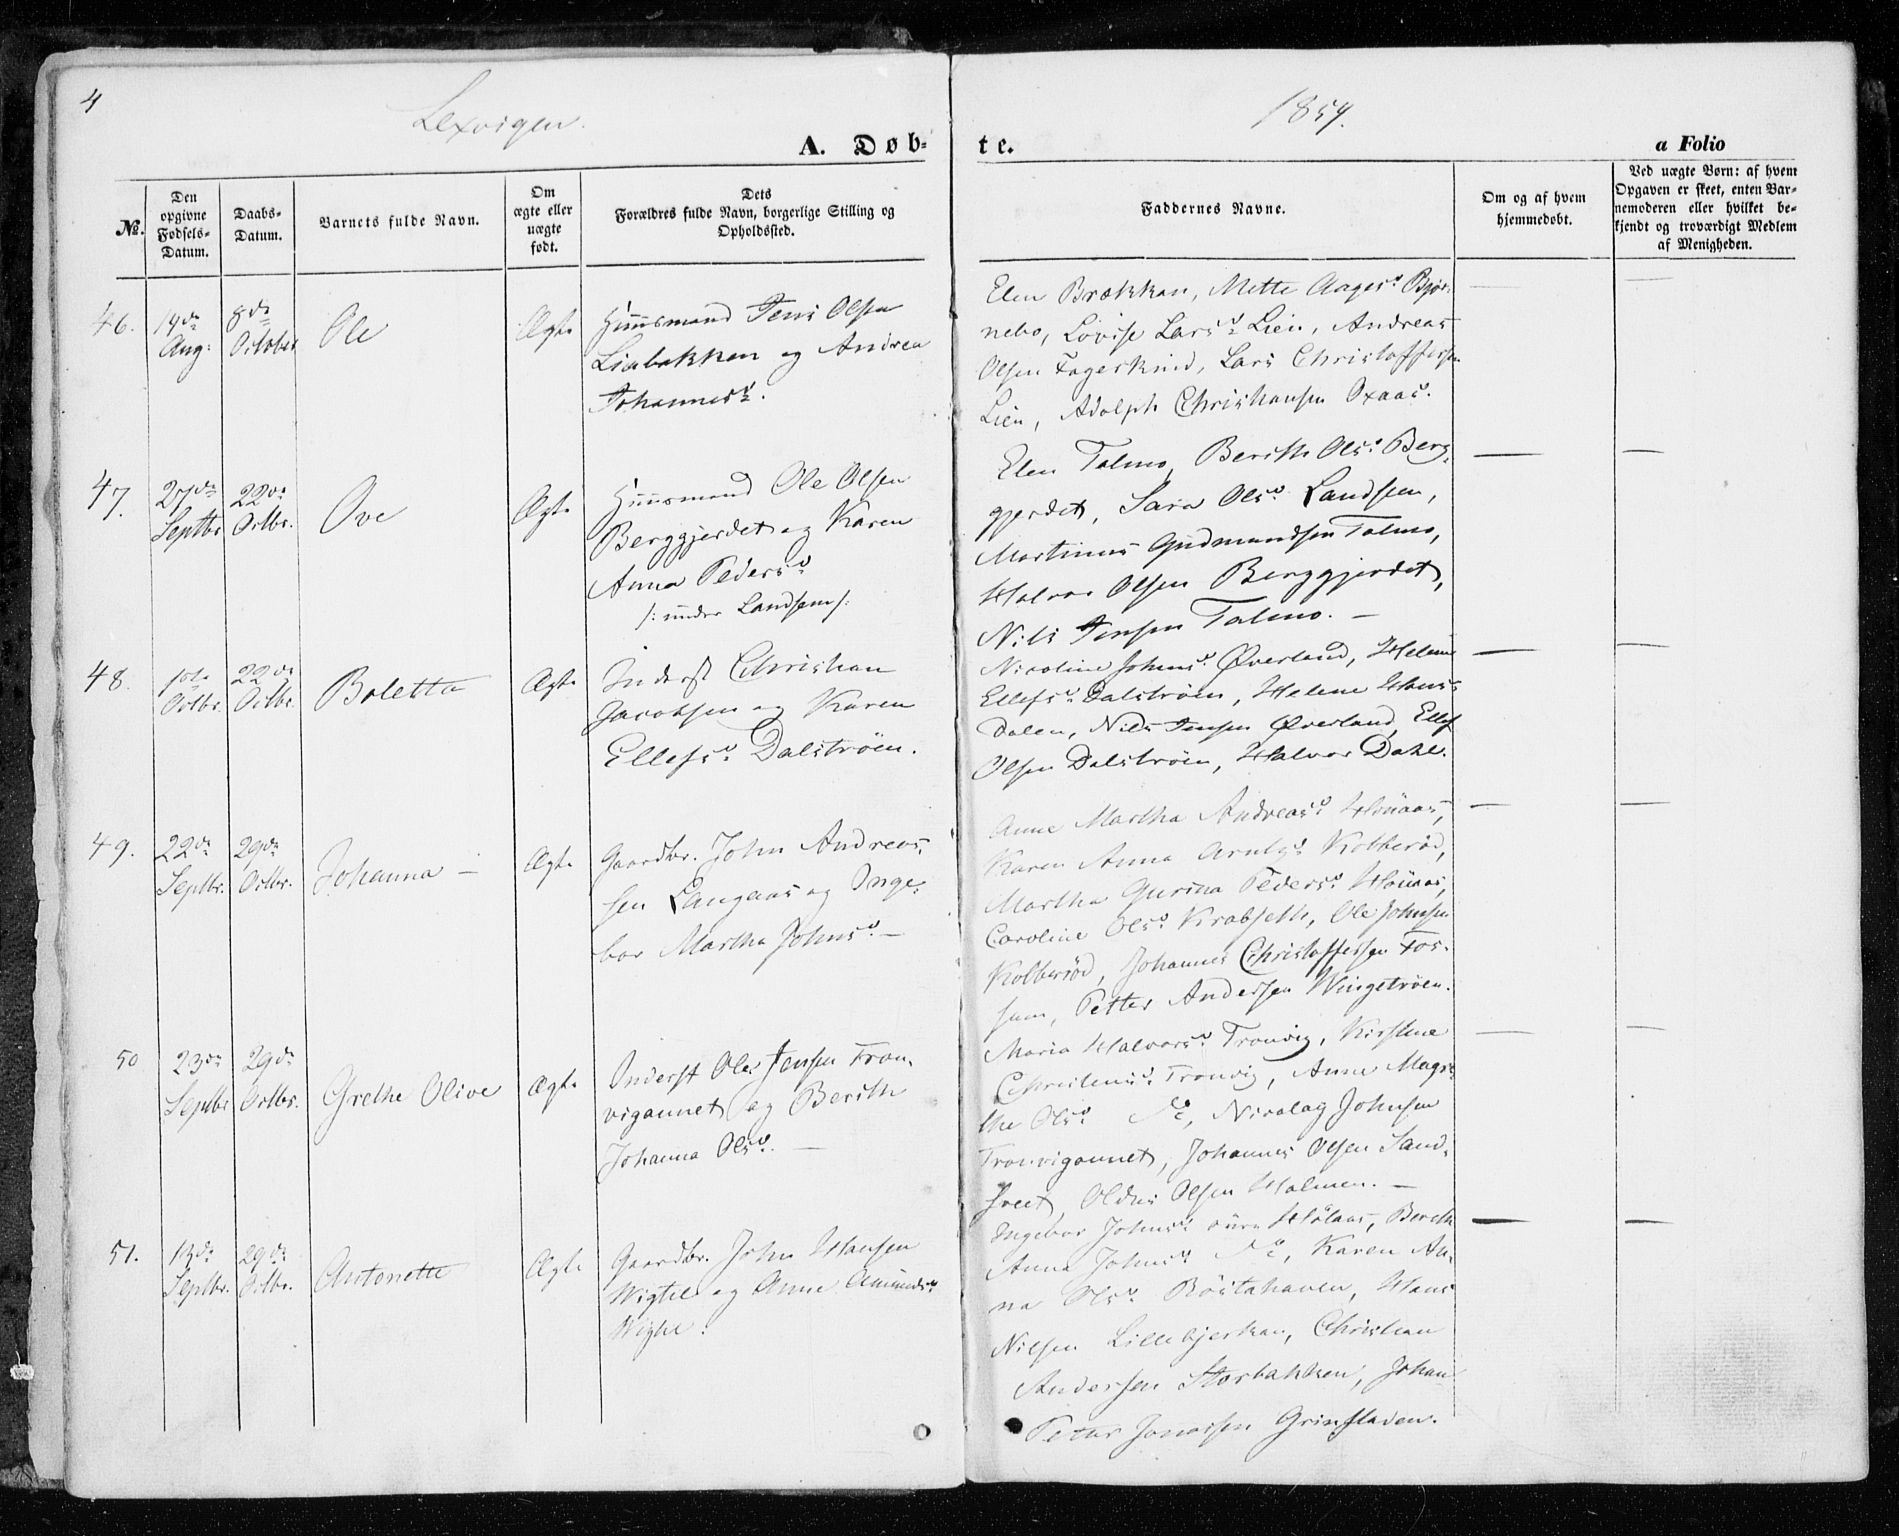 4
Lexvigen.
1854.
A. Døb-
te.
a Folio
No.
Den
opgivne
Fødsels-
Datum.
Daabs-
Datum.
Barnets fulde Navn.
Om
ægte eller
uægte
født.
Dets
Forældres fulde Navn, borgerlige Stilling og
Opholdssted.
Faddernes Navne.
Om og af hvem
hjemmedøbt.
Ved uægte Børn: af hvem
Opgaven er skeet, enten Bar-
nemoderen eller hvilket be-
kjendt og troværdigt Medlem
af Menigheden.
46.
19de
Aug:
8de
October
Ole
Ægte
Huusmand Jens Olsen
Liabakken og Andrea
Johannesd.
Elen Brækkan, Mette Aagesd. Bjør-
nebo, Lovise Larsd. Lien, Andreas
Olsen Fageskind, Lars Christoffersen
Lien, Adolph Christiansen Oxaas.
47.
27de
Septbr
22de
Octbr.
Ove
Ægte
Huusmand Ole Olsen
Berggjerdet og Karen
Anna Pedersd.
/: under Landsem :/
Elen Talmo, Berith Olsd. Berg-
gjerdet, Sara Olsd. Landsem,
Martinus Gudmundsen Talmo,
Halvor Olsen Berggjerdet,
Nils Jensen Talmo. —
48.
1ste
Octbr.
22de
Octbr.
Boletta
Ægte
Inderst Christian
Jacobsen og Karen
Ellefsd. Dalstrøen.
Nicoline Johnsd. Øverland, Helene
Ellefsd. Dalstrøen, Helene Hans-
dalen, Nils Jensen Øverland, Ellef
Olsen Dalstrøen, Halvor Dahl.
49.
22de
Septbr.
29de
Octbr.
Johanna —
Ægte
Gaardbr. John Andreas-
sen Langaas og Inge-
bor Martha Johnsd. —
Anne Martha Andreasd. Houaas,
Karen Anna Kolberød,
Martha Gurina Pedersd. Houaas,
Caroline Olsd. Krabseth, Ole Johnsen
Kolberød, Johannes Christoffersen Fos-
sum, Petter Andersen Wingstrøen.
50
23de
Septbr
29de
Octbr.
Grethe Olive
Ægte
Inderst Ole Jensen Tron-
vigaunet og Berith
Johanna Olsd. —
Maria Halvorsd. Tronvig, Kirstine
Christensd. Tronvig, Anne Magre-
the Olsd. , Nicolay Johnsen
Tronvigaunet, Johannes Olsen Sand-
hveet, Oldus Olsen Halmen. —
51.
13de
Septbr.
29de
Octbr.
Antonette
Ægte
Gaardbr. John Hansen
Wigtil og Anne Amundsd.
Ingebor Johnsd. øvre Hølaas, Berith
Anna Johnsd. , Karen An-
na Olsd. Røstahaven, Hans
Nilsen Lillebjerkan, Christian
Andersen Storbakken, Johan
Peter Jonassen Grinsladen.